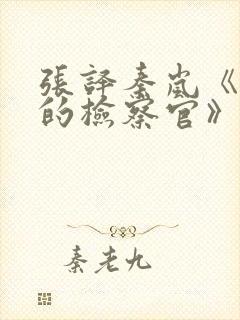 張譯秦嵐《
的檢察官》
秦老九